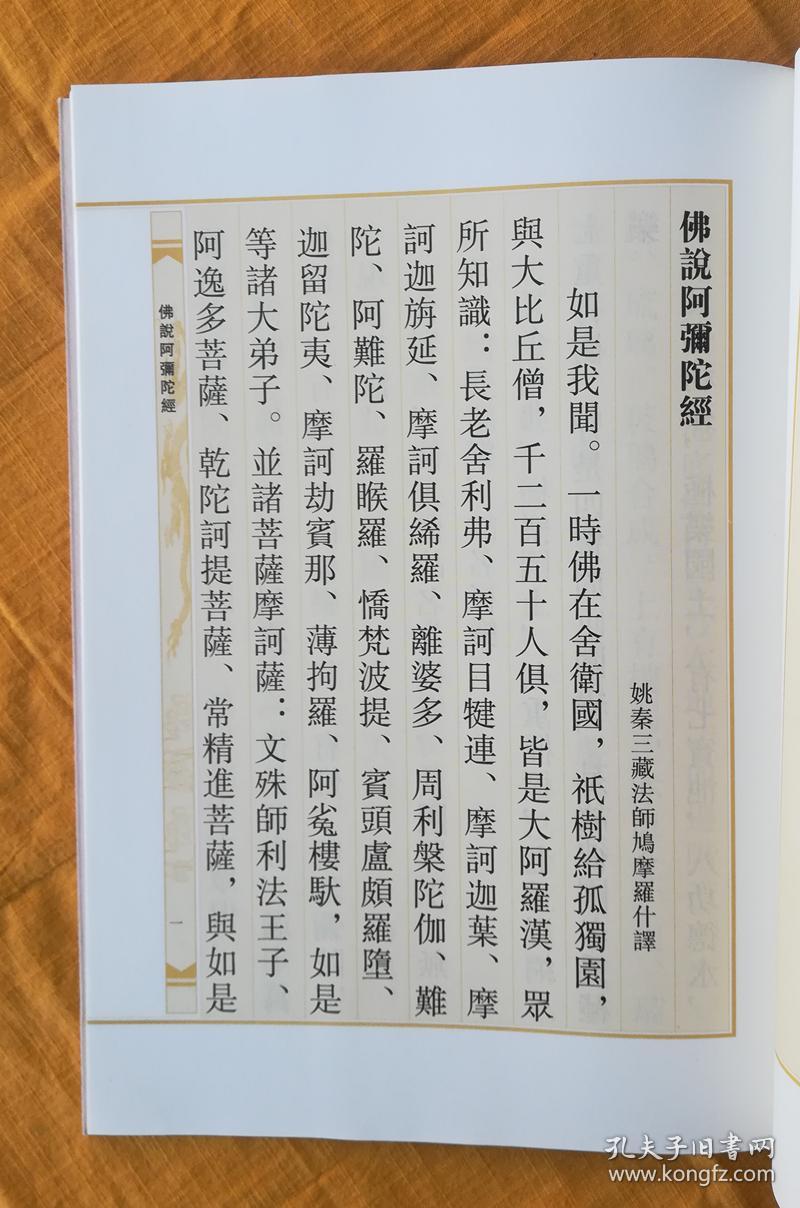 佛說阿彌陀經
姚秦三藏法師鳩摩羅什譯
如是我聞。一時佛在舍衛國，祇樹給孤獨園，
與大比丘僧，千二百五十人俱，皆是大阿羅漢，眾
所知識：長老舍利弗、摩訶目犍連、摩訶迦葉、摩
訶迦旃延、摩訶俱絺羅、離婆多、周利槃陀伽、難
陀、阿難陀、羅睺羅、憍梵波提、賓頭盧頗羅墮、
迦留陀夷、摩訶劫賓那、薄拘羅、阿㝹樓馱，如是
等諸大弟子。並諸菩薩摩訶薩：文殊師利法王子、
阿逸多菩薩、乾陀訶提菩薩、常精進菩薩，與如是
佛說阿彌陀經
一
孔夫子旧書网
www.kongfz.com